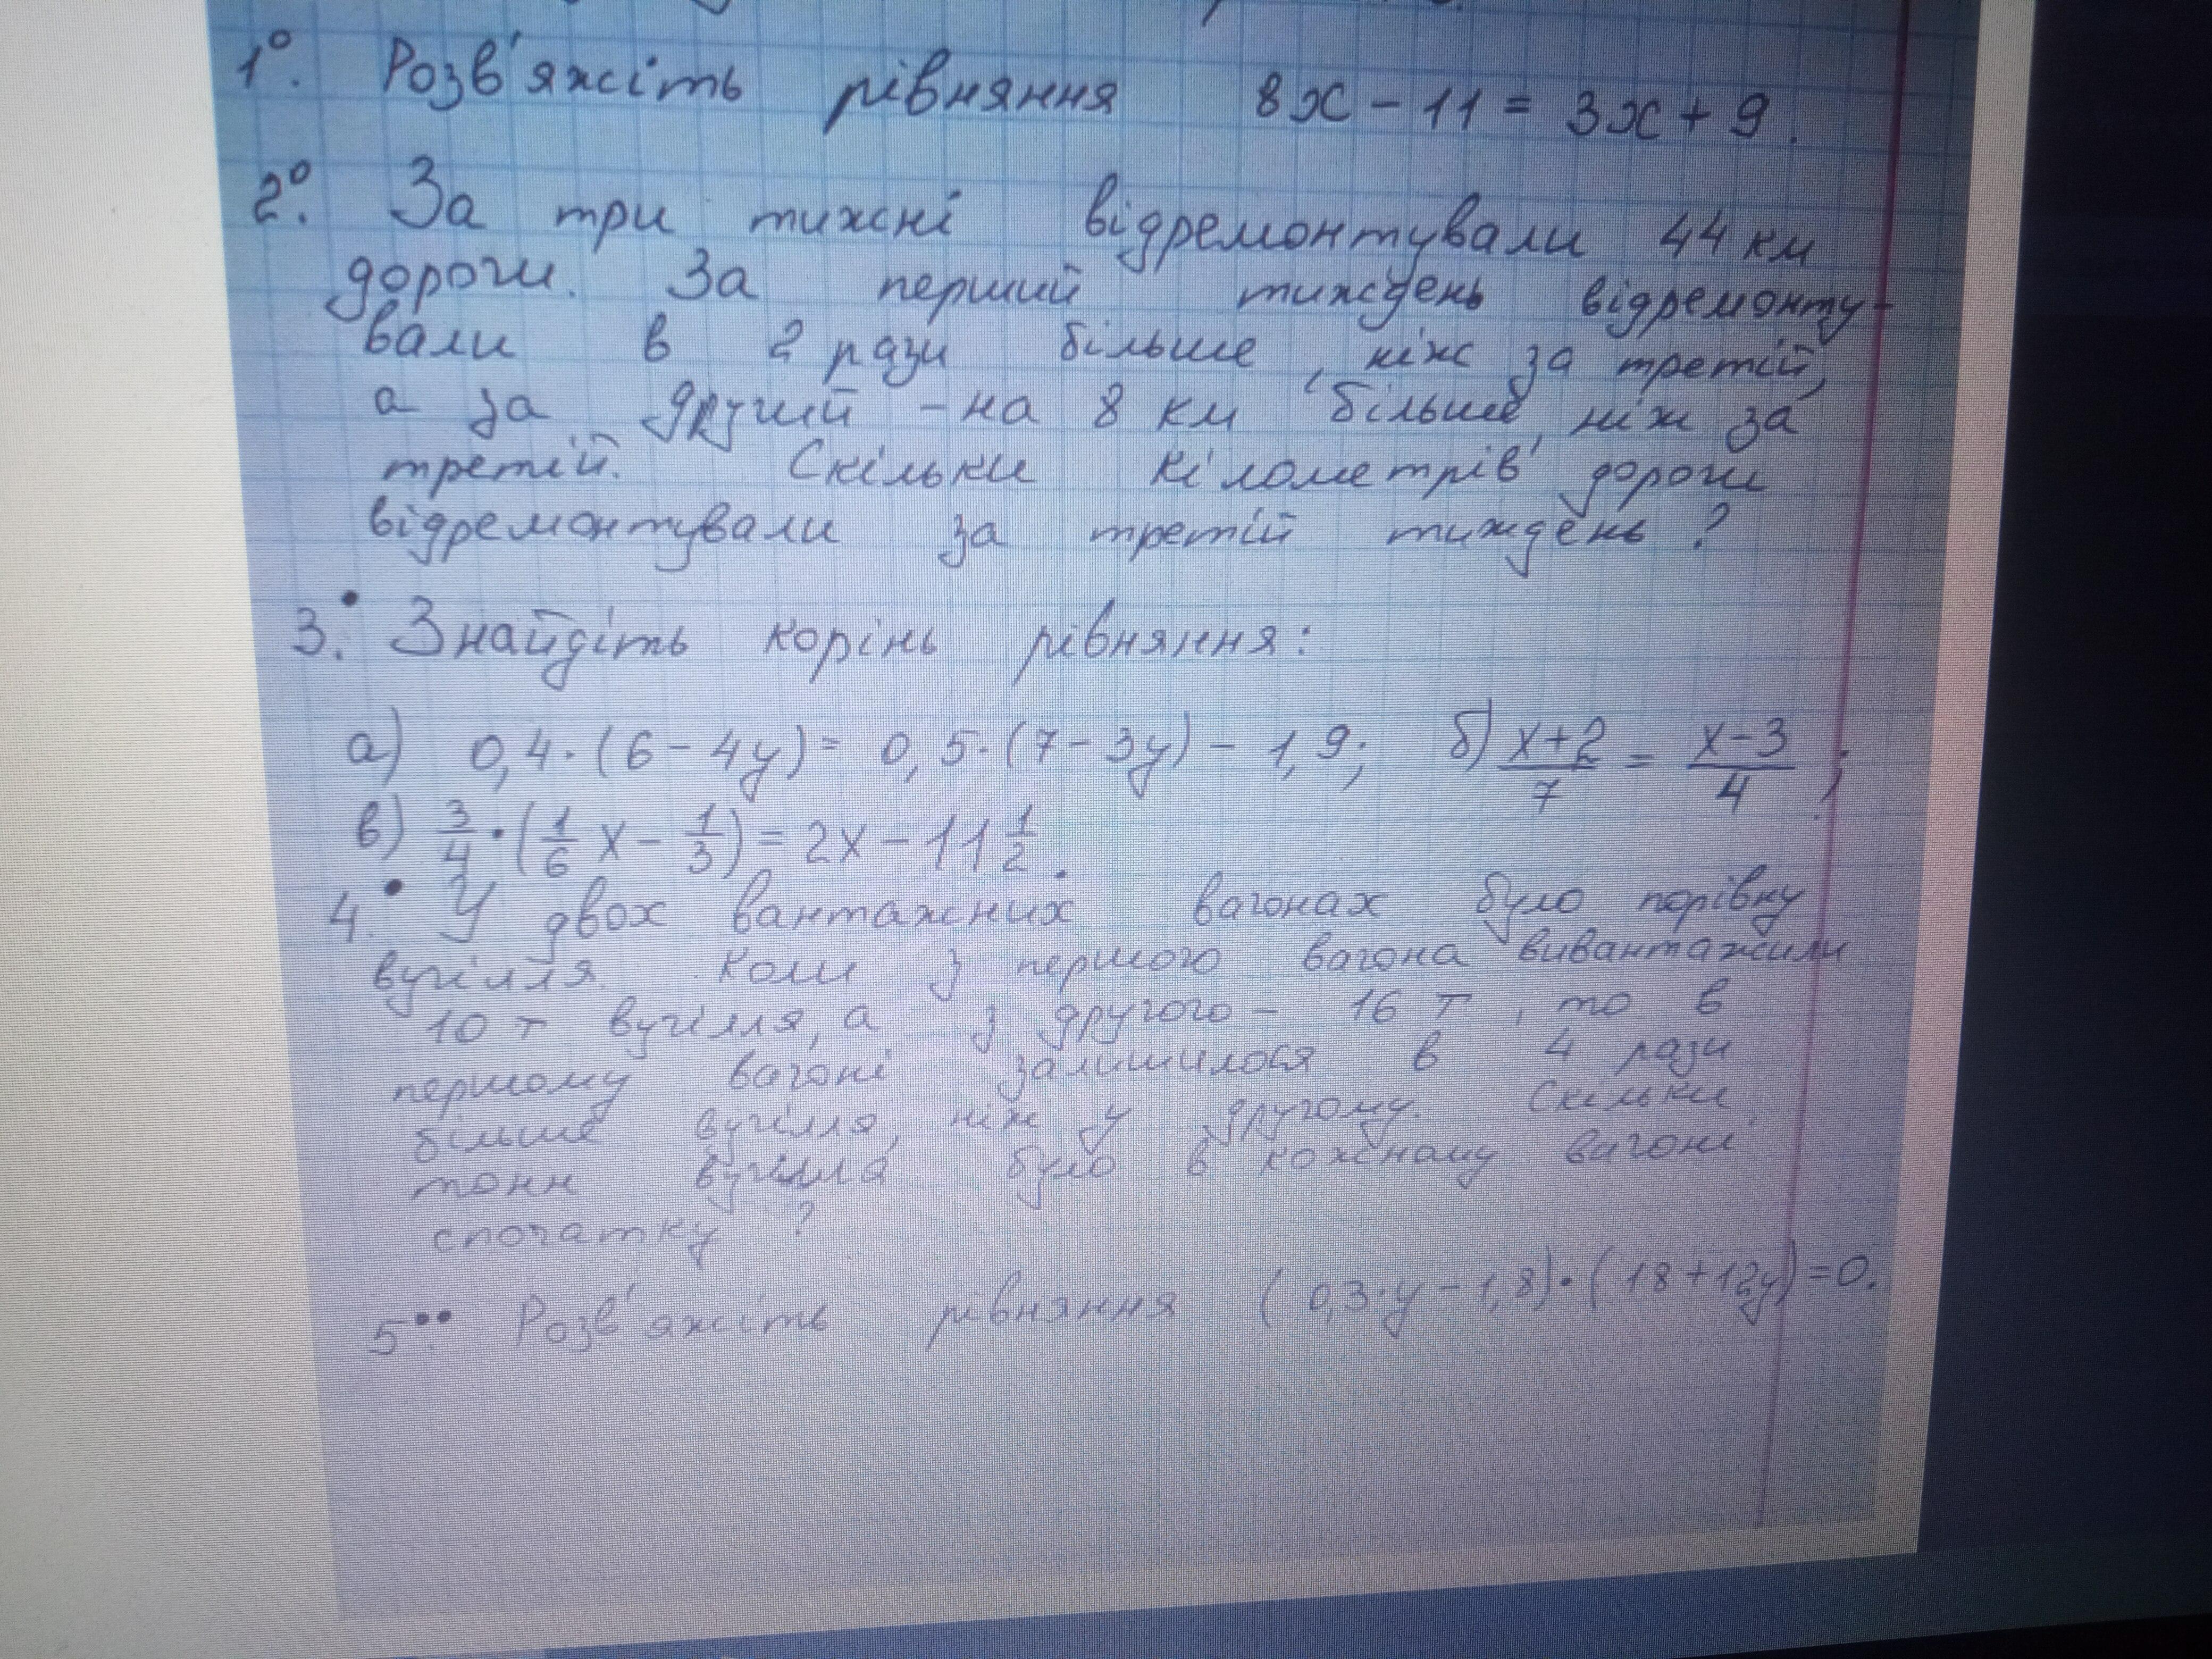 1°. Розв'яжіть рівняння 8x - 11 = 3x + 9.
2°. За три тижні відремонтували 44 км
дороги. За перший тиждень відремонту-
вали в 2 рази більше, ніж за третій,
а за другий - на 8 км більше, ніж за
третій. Скільки кілометрів дороги
відремонтували за третій тиждень?
3.• Знайдіть корінь рівняння:
а) 0,4·(6-4y) = 0,5·(7-3y) - 1,9; б) (x+2)/7 = (x-3)/4;
в) 3/4·(1/6 x - 1/3) = 2x - 11 1/2.
4.• У двох вантажних вагонах було порівну
вугілля. Коли з першого вагона вивантажили
10 т вугілля, а з другого - 16 т, то в
першому вагоні залишилося в 4 рази
більше вугілля, ніж у другому. Скільки
тонн вугілля було в кожному вагоні
спочатку?
5.•• Розв'яжіть рівняння (0,3·y - 1,8)·(18+12y)=0.